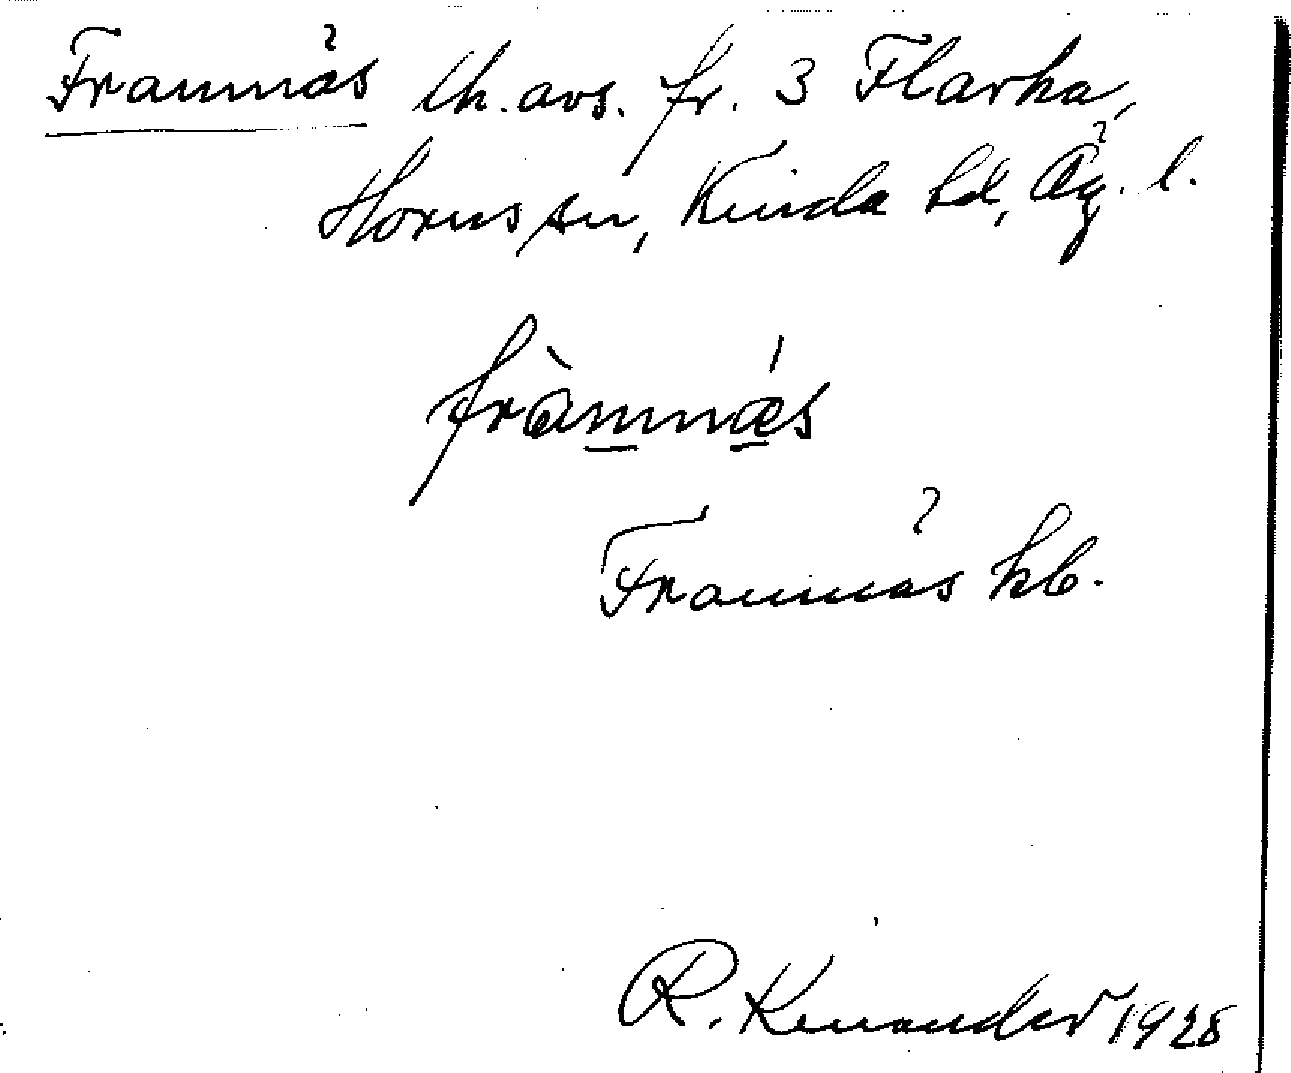 Framnäs lh. avs. fr. 3 Flarka,
Horns sn, Kinda hd, Ög. l.
fràmnǽs
Framnäs kb.
R. Kinander 1928